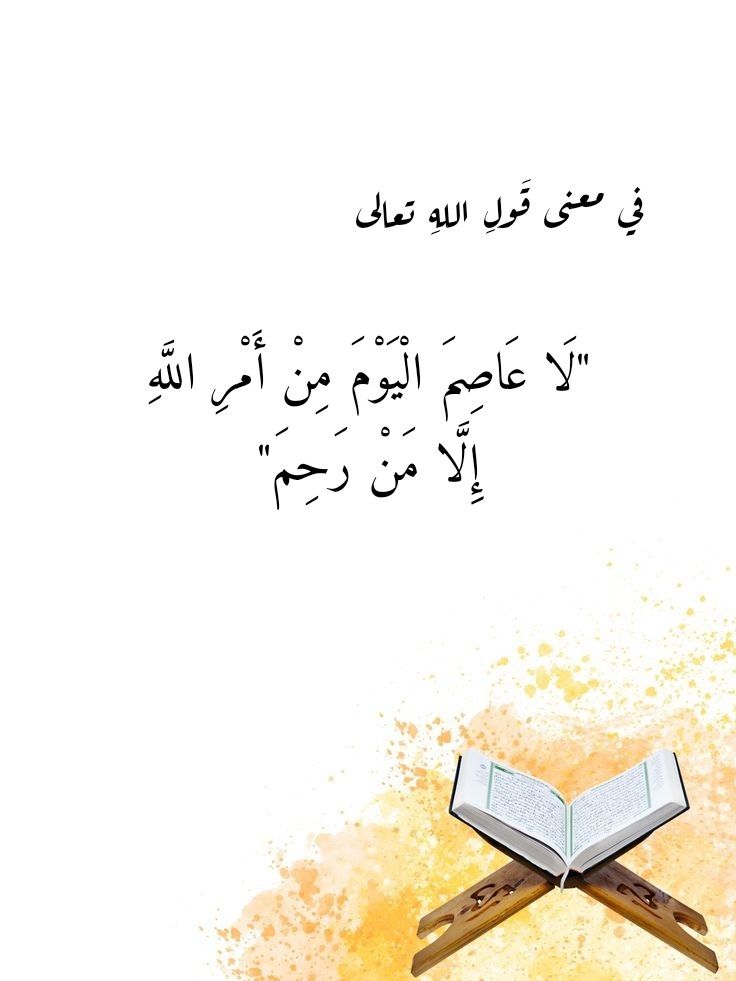 في معنى قَولِ اللهِ تعالى
"لَا عَاصِمَ الْيَوْمَ مِنْ أَمْرِ اللَّهِ
إِلَّا مَنْ رَحِمَ"